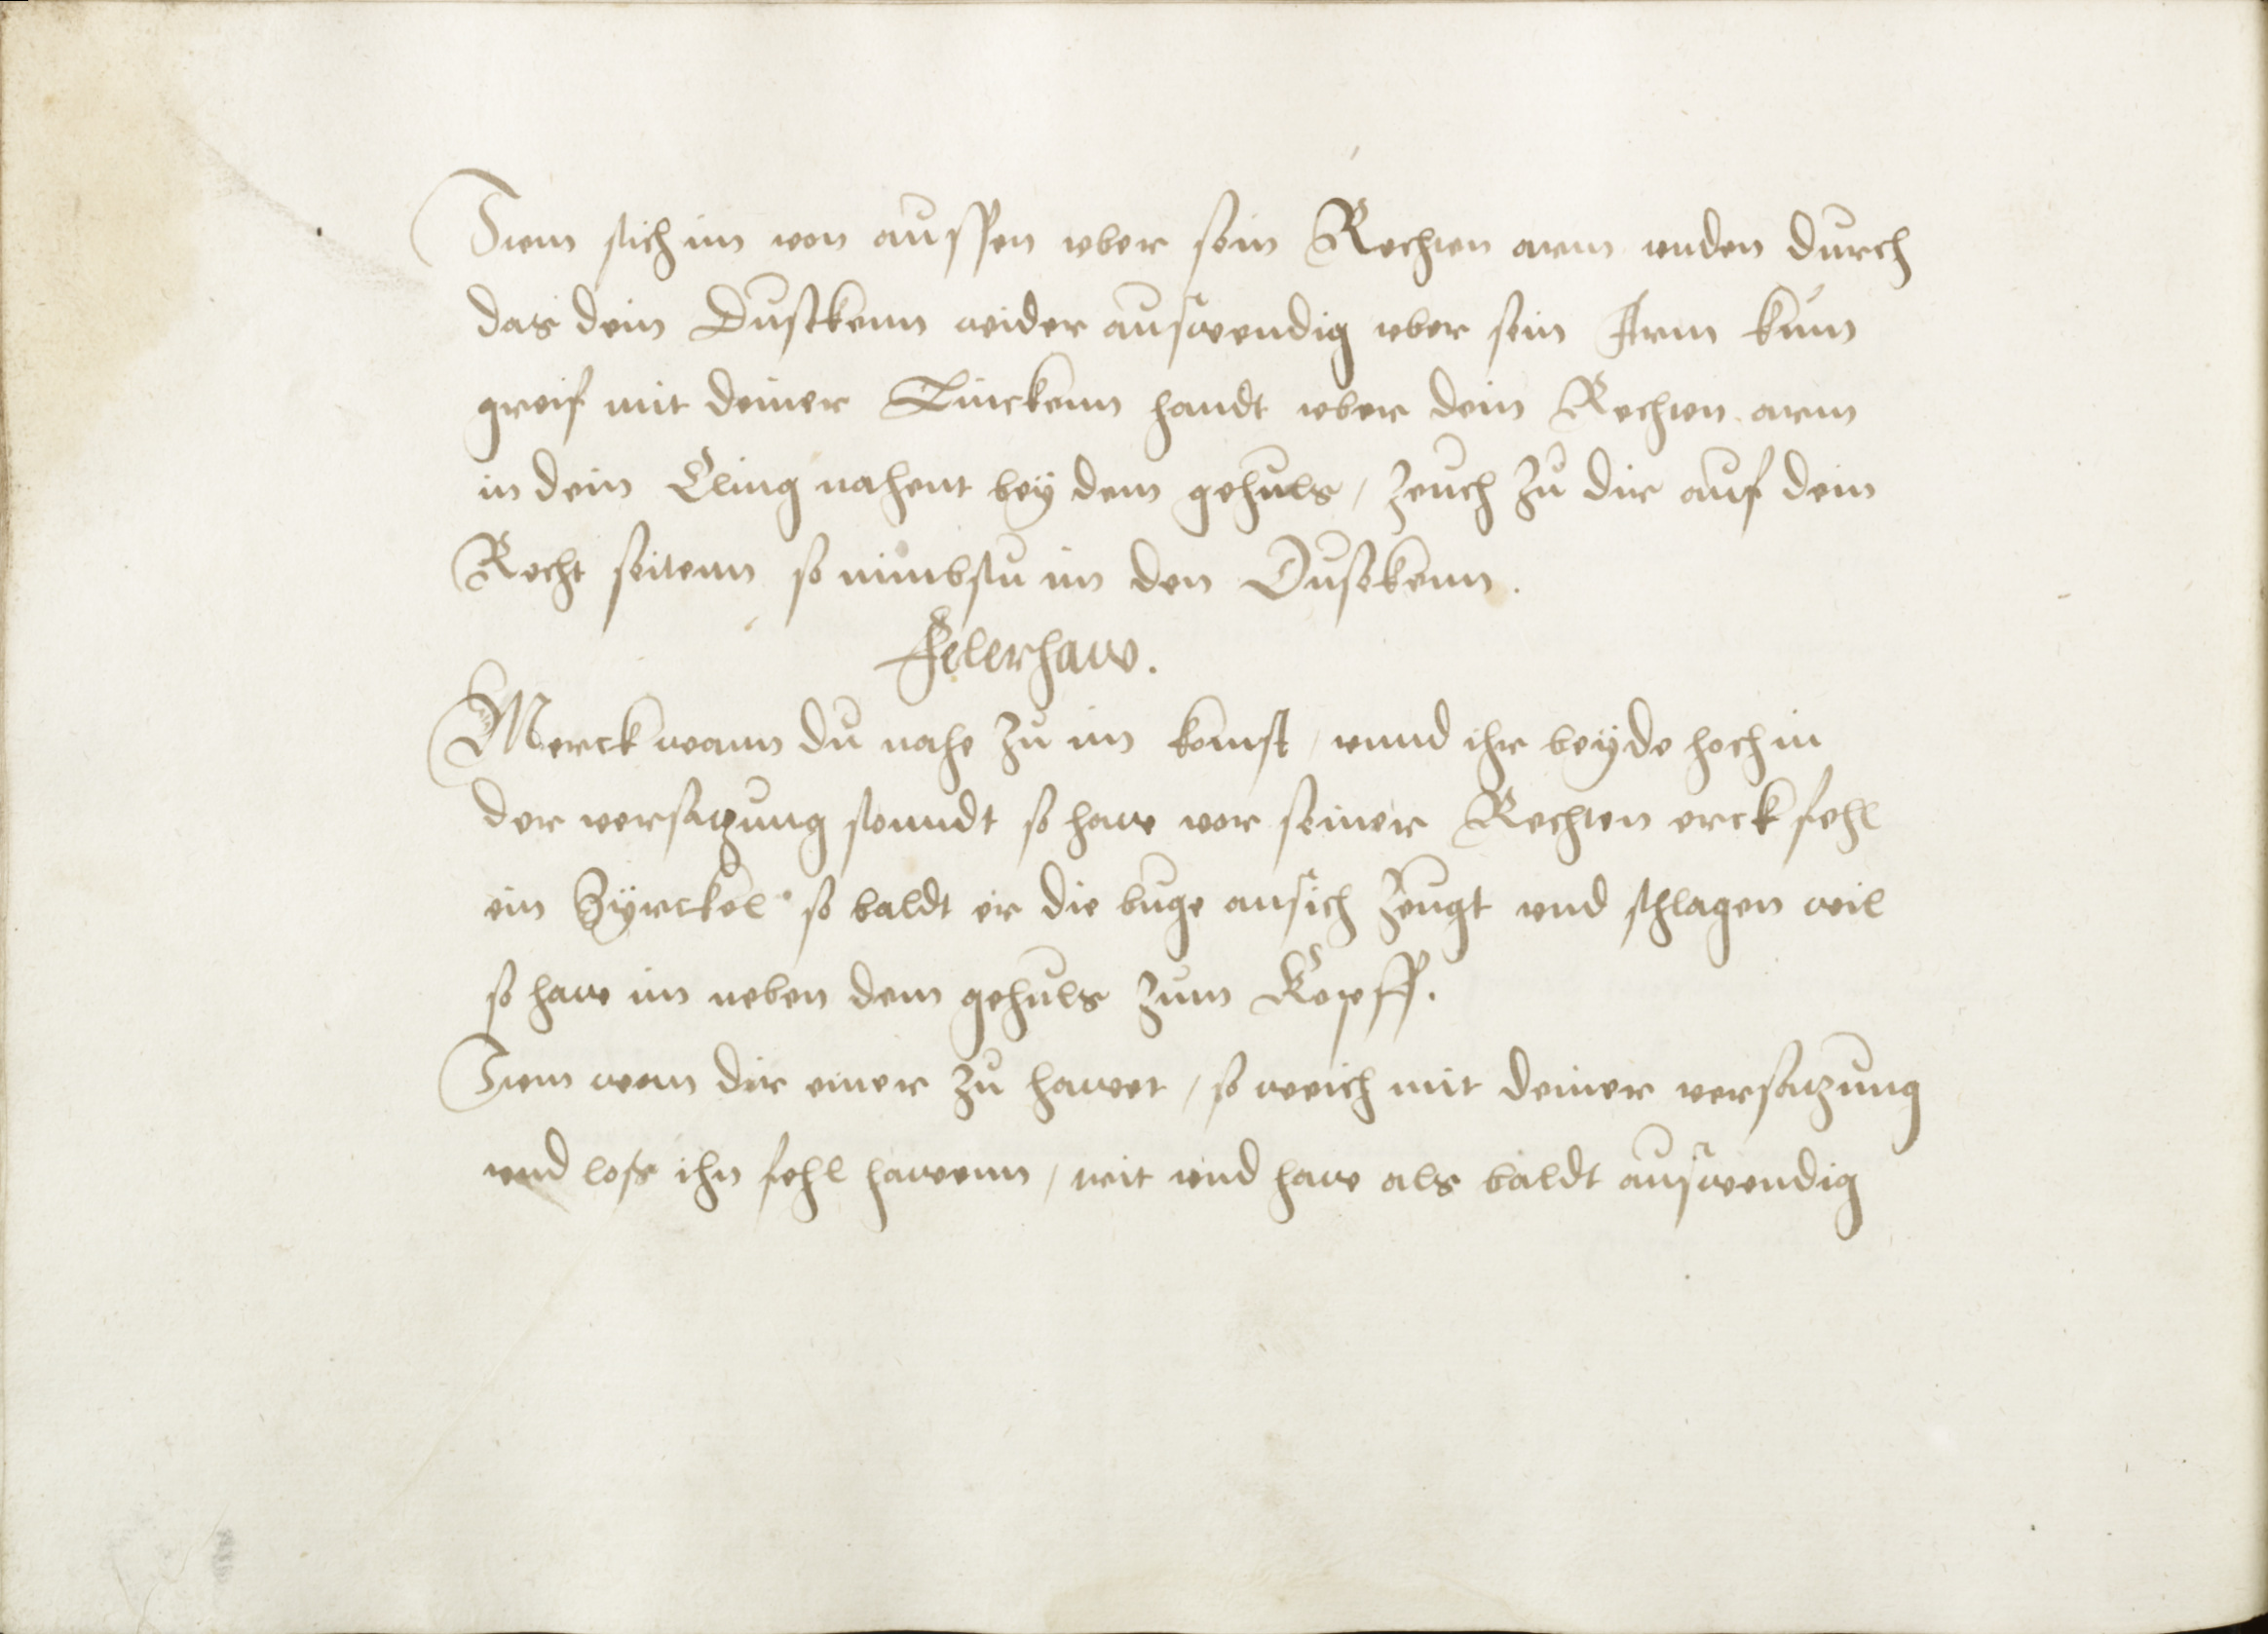 Item stich im von aussen vber sein Rechten arm vnden durch
das dein Dusckenn wider auswendig vber sein Arm kum
greif mit deiner Linckenn handt vber dein Rechten arm
in dein Cling nahent bey dem gehuls / zeuch zu dir auf dein
Recht seitenn so nimbstu im den Dusekenn.
Felerhaw.
Merck wann du nahe zu im komst / vnnd ihr beyde hoch in
der versatzung stenndt so haw vor seiner Rechten eck fehl
ein Zyrckel so baldt er die buge ansich zeugt vnd schlagen wil
so haw im neben dem gehuls zum Kopff.
Item wen dir einer zu hawet / so weich mit deiner versatzung
vnd loss ihn fehl hawenn / trit vnd haw als baldt auswendig